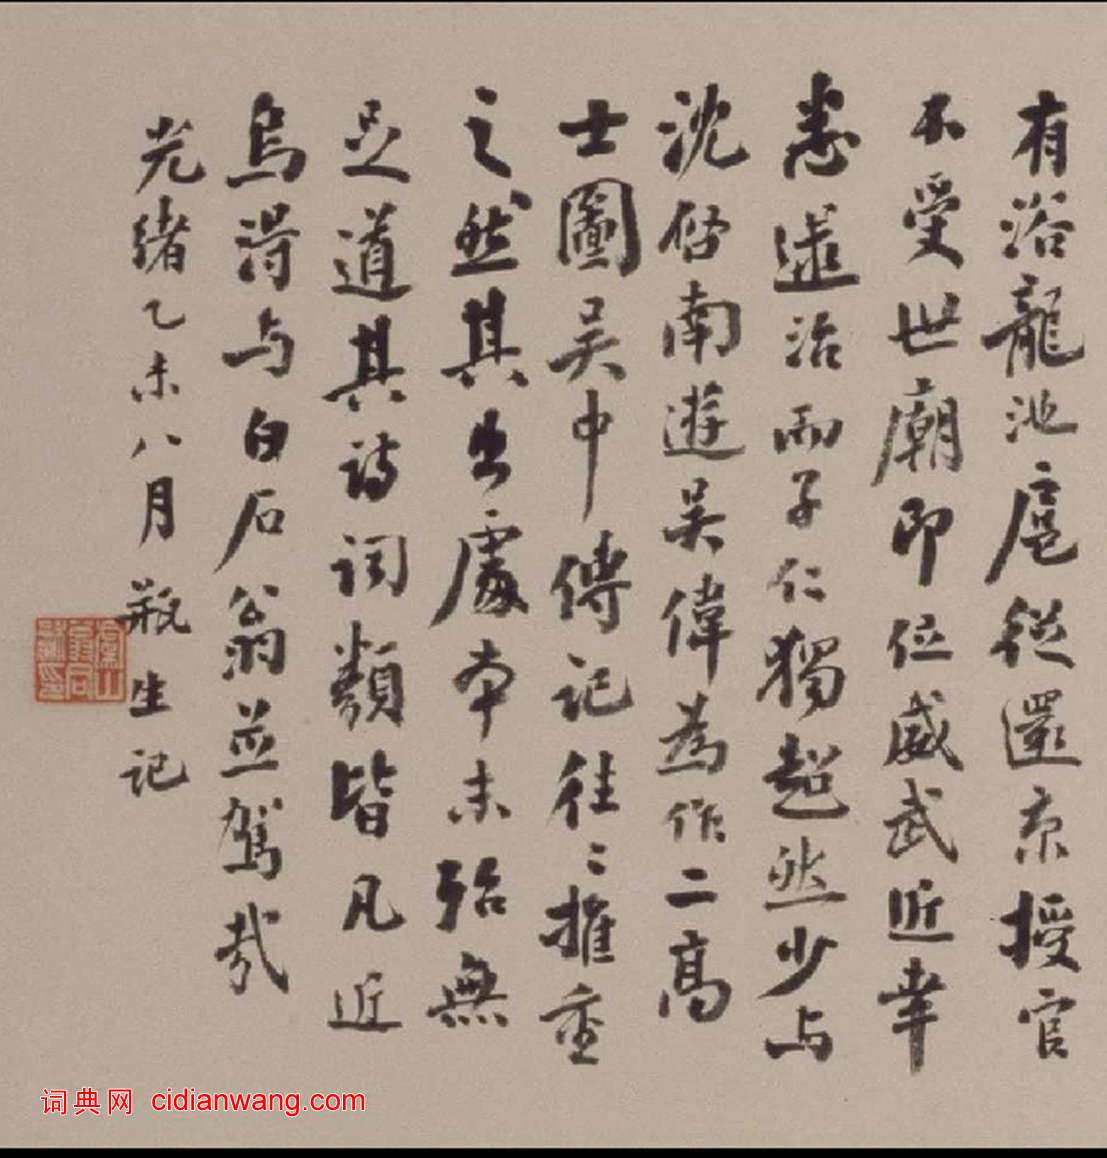 有浴龍池扈從還京授官
不受世廟即位威武近幸
悉逮治而子仁獨超然少与
沈啓南遊吴偉為作二高
士圖吴中傳記往〻推重
之然其出處本末殆無
足道其詩詞類皆凡近
烏得与白石翁並駕哉
光緒乙未八月瓶生記
虞山翁同龢印
词典网 cidianwang.com